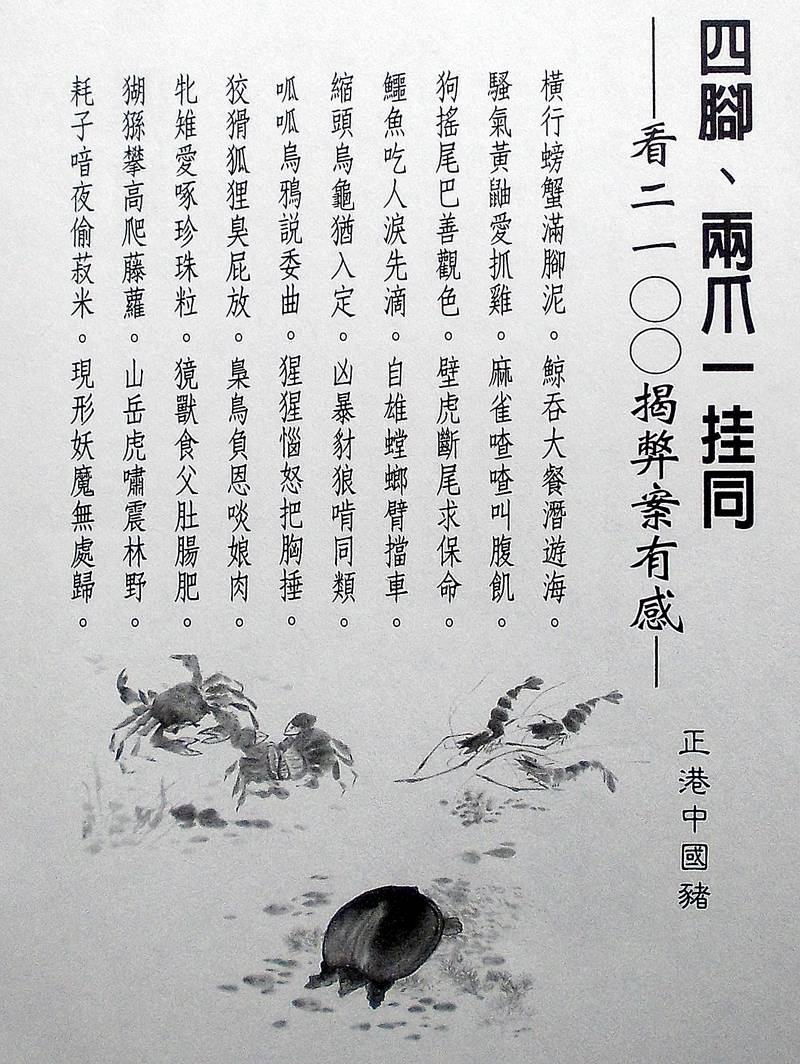 四腳、兩爪一挂同
——看二一〇〇揭弊案有感—
正港中國豬
橫行螃蟹滿腳泥。鯨吞大餐潛遊海。
騷氣黃鼬愛抓雞。麻雀喳喳叫腹飢。
狗搖尾巴善觀色。壁虎斷尾求保命。
鱷魚吃人淚先滴。自雄螳螂臂擋車。
縮頭烏龜猶入定。凶暴豺狼啃同類。
呱呱烏鴉說委曲。猩猩惱怒把胸捶。
狡猾狐狸臭屁放。梟鳥負恩啖娘肉。
牝雉愛啄珍珠粒。獍獸食父肚腸肥。
猢猻攀高爬藤蘿。山岳虎嘯震林野。
耗子喑夜偷菽米。現形妖魔無處歸。